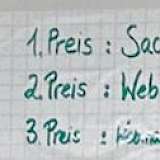 1. Preis : Sac
2. Preis : Web
3. Preis :